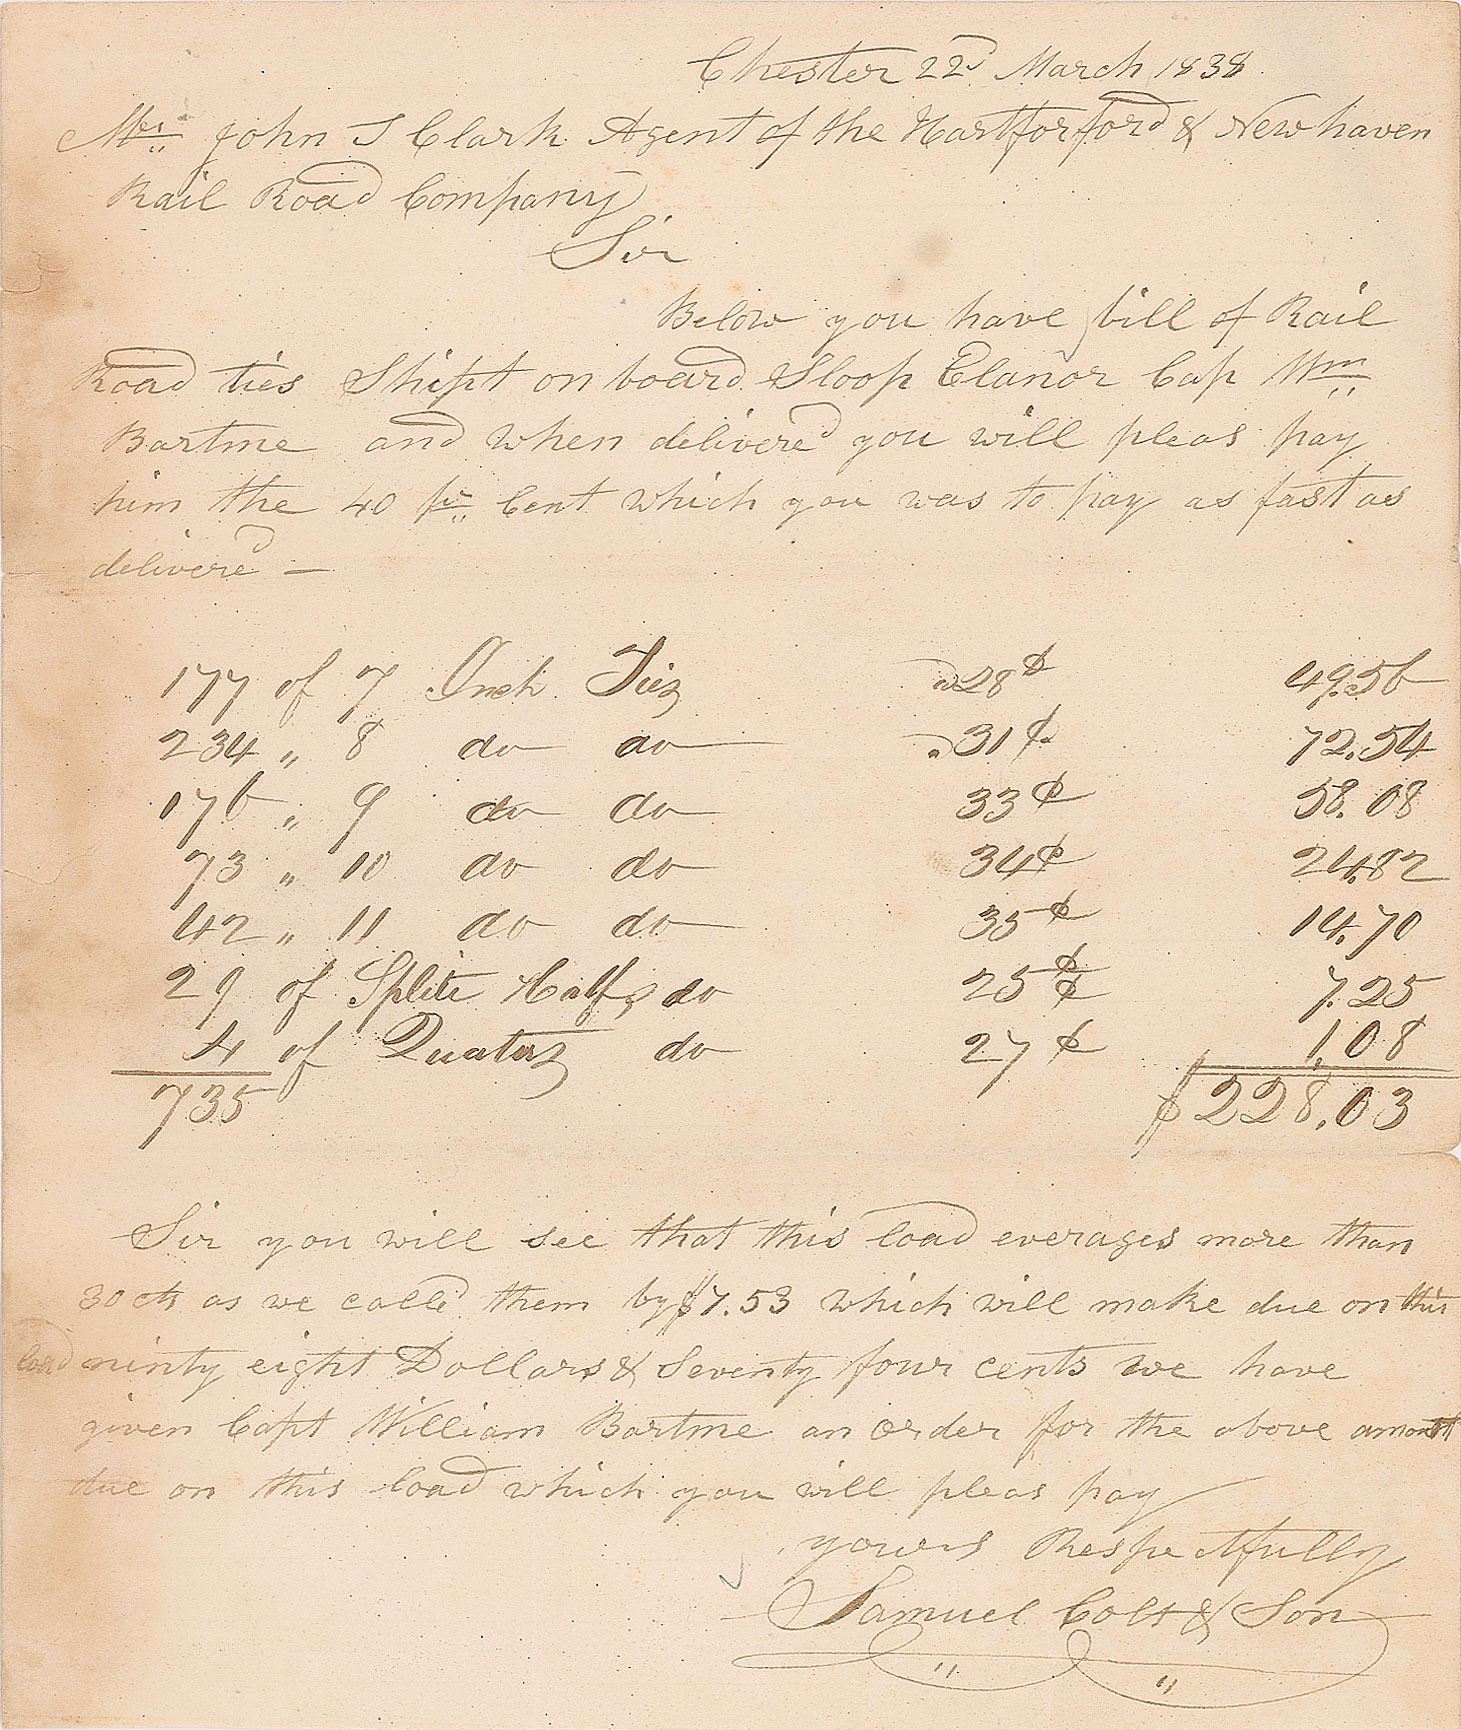 Chester 22d March 1838
Mr. John S Clark Agent of the Hartforford & Newhaven
Rail Road Company
Sir
Below you have bill of Rail
Road ties Shipt on board Sloop Elanor Cap Wm
Bartme and when delivered you will pleas pay
him the 40 pr Cent which you was to pay as fast as
delivered —
177 of 7 Inch Tiez a 28 ¢ 49.56
234 " 8 do do a 31 ¢ 72.54
176 " 9 do do 33 ¢ 58.08
73 " 10 do do 34 ¢ 24.82
42 " 11 do do 35 ¢ 14.70
29 of Splite Halfs do 25 ¢ 7.25
4 of Quaterz do 27 ¢ 1,08
735 $228.03
Sir you will see that this load everages more than
30 cts as we calld them by $7.53 which will make due on this
load ninty eight Dollars & Seventy four cents we have
given Capt William Bartme an order for the above amount
due on this load which you will pleas pay
yours Respectfully
Samuel Colt & Son